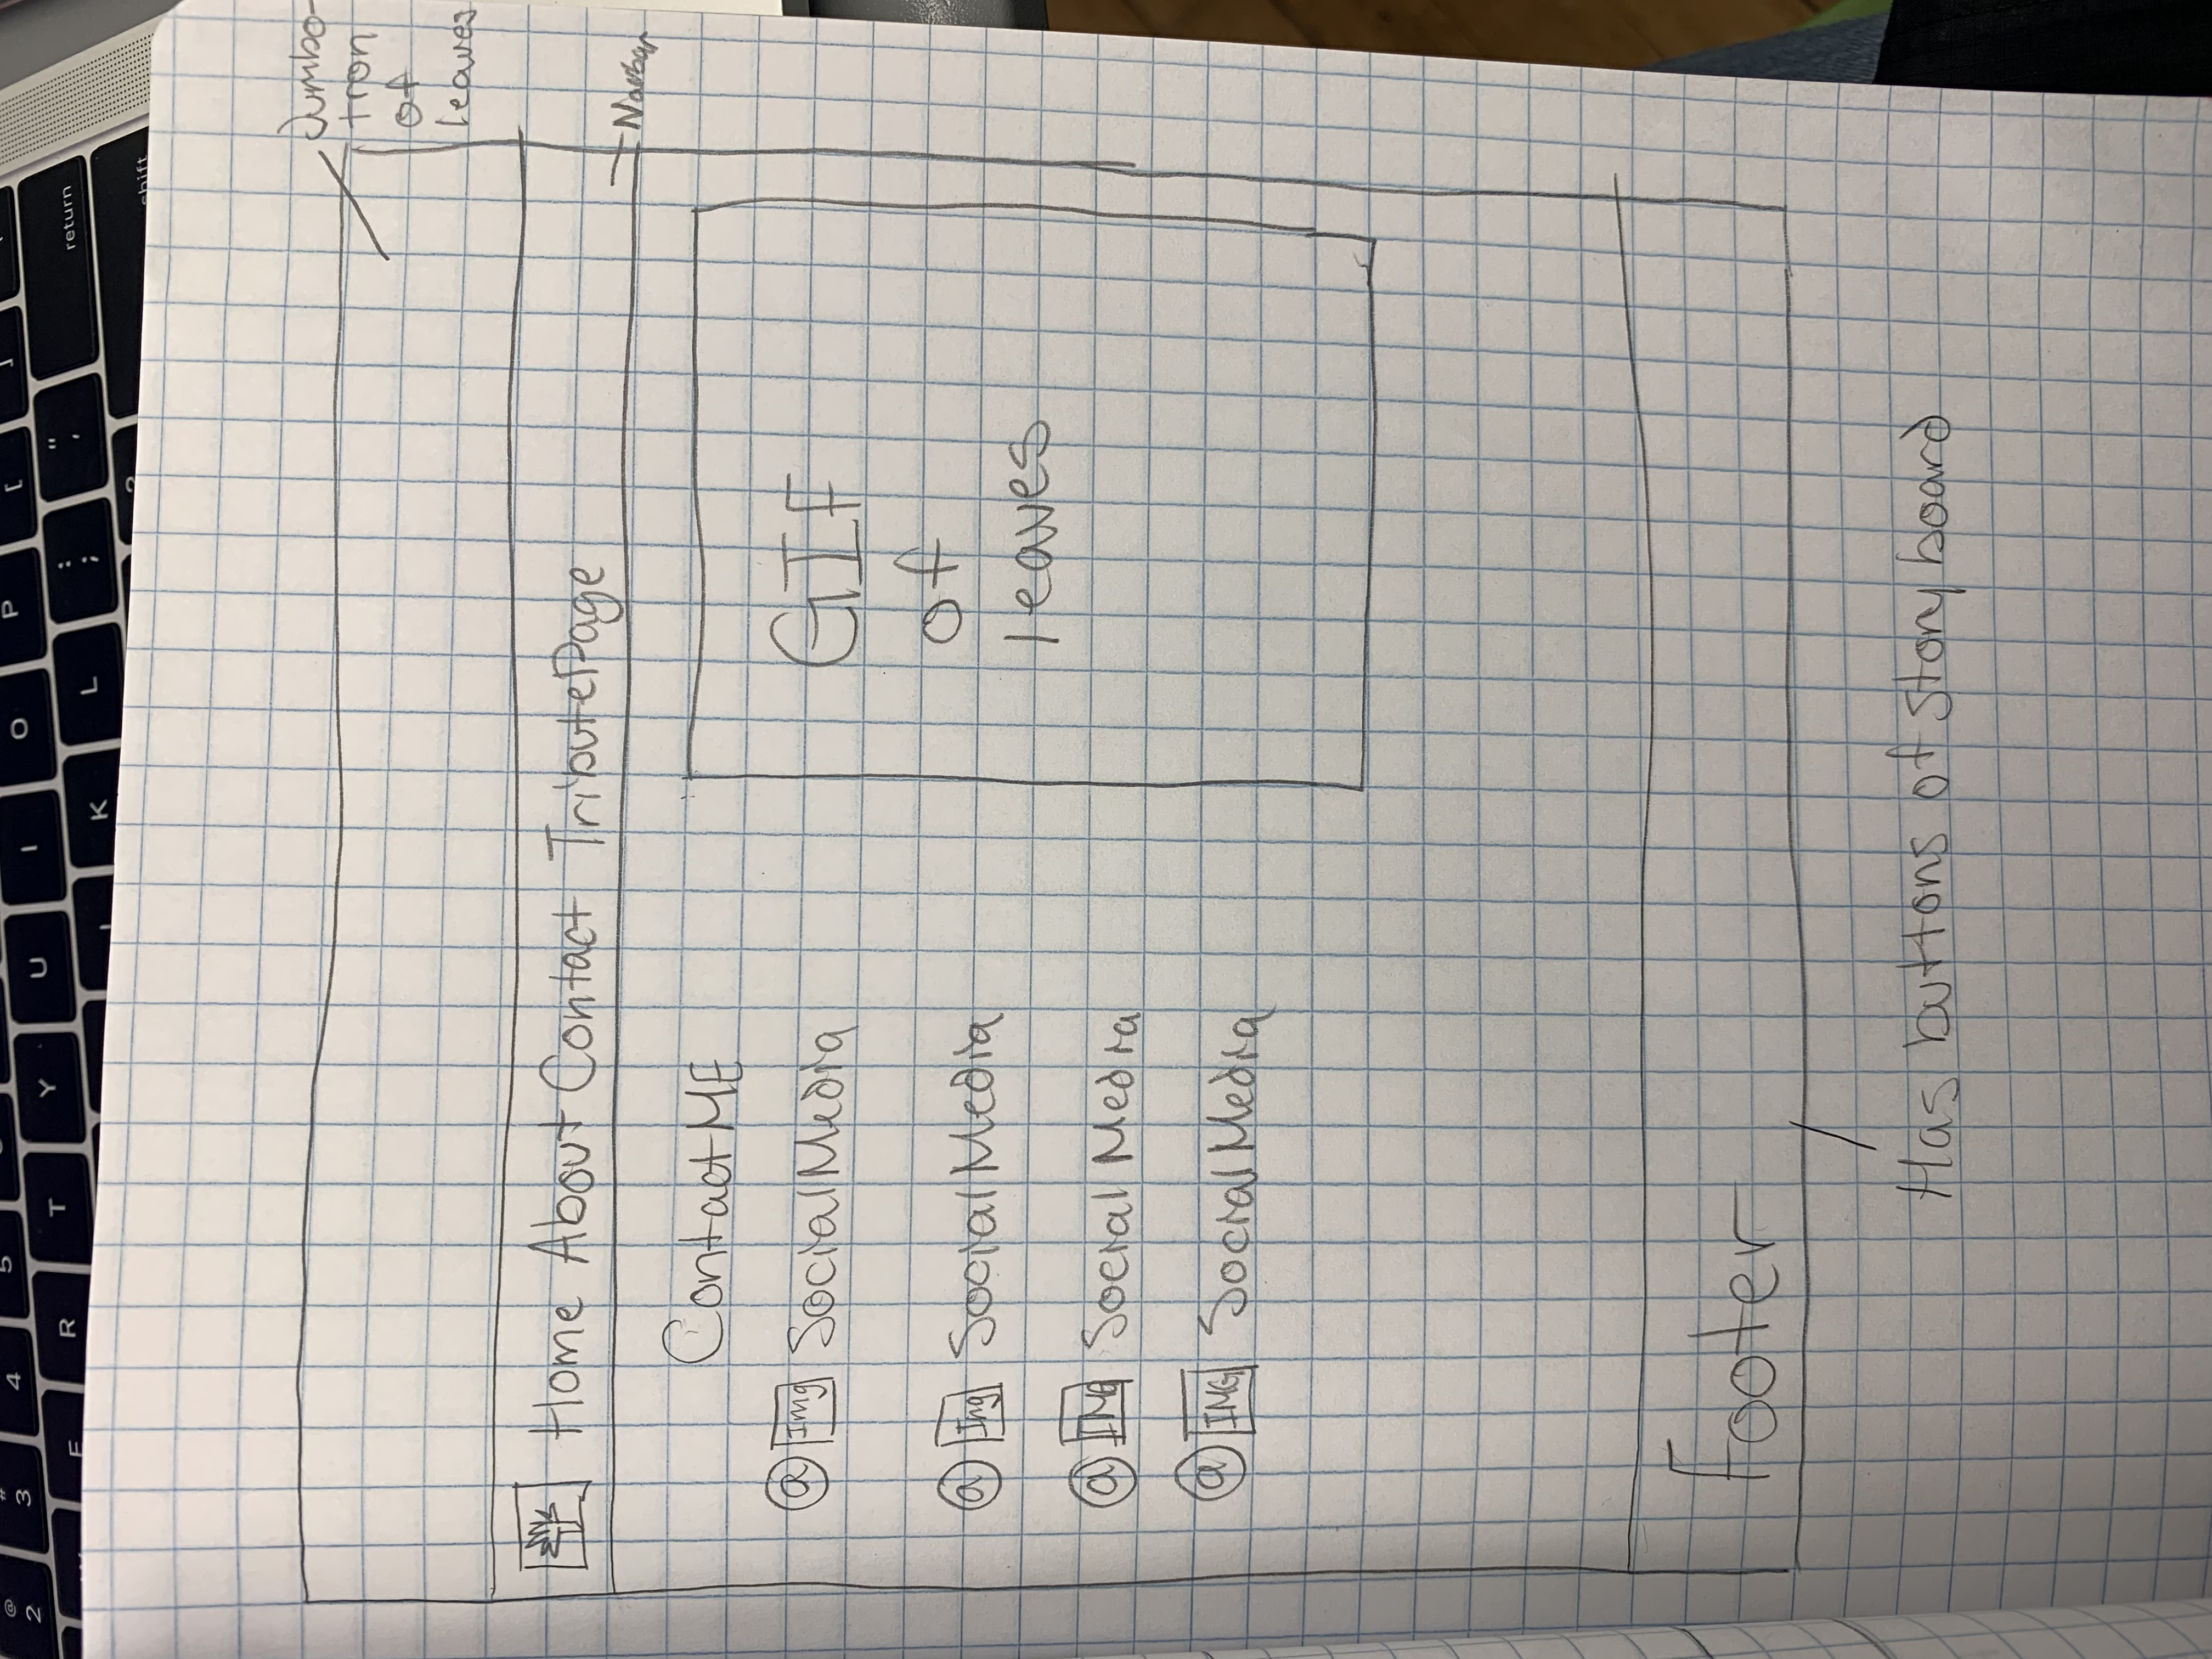 @ 2
# 3
4
5
E R T Y U I O P [ ]
K L : ; " ' return
? shift
Jumbo-
tron
of
leaves
Home About Contact TributePage
Navbar
ContactME
@ Img SocialMedia
@ Img SocialMedia
@ IMG Social Media
@ IMG Social Media
GIF
of
leaves
Footer
Has buttons of story board